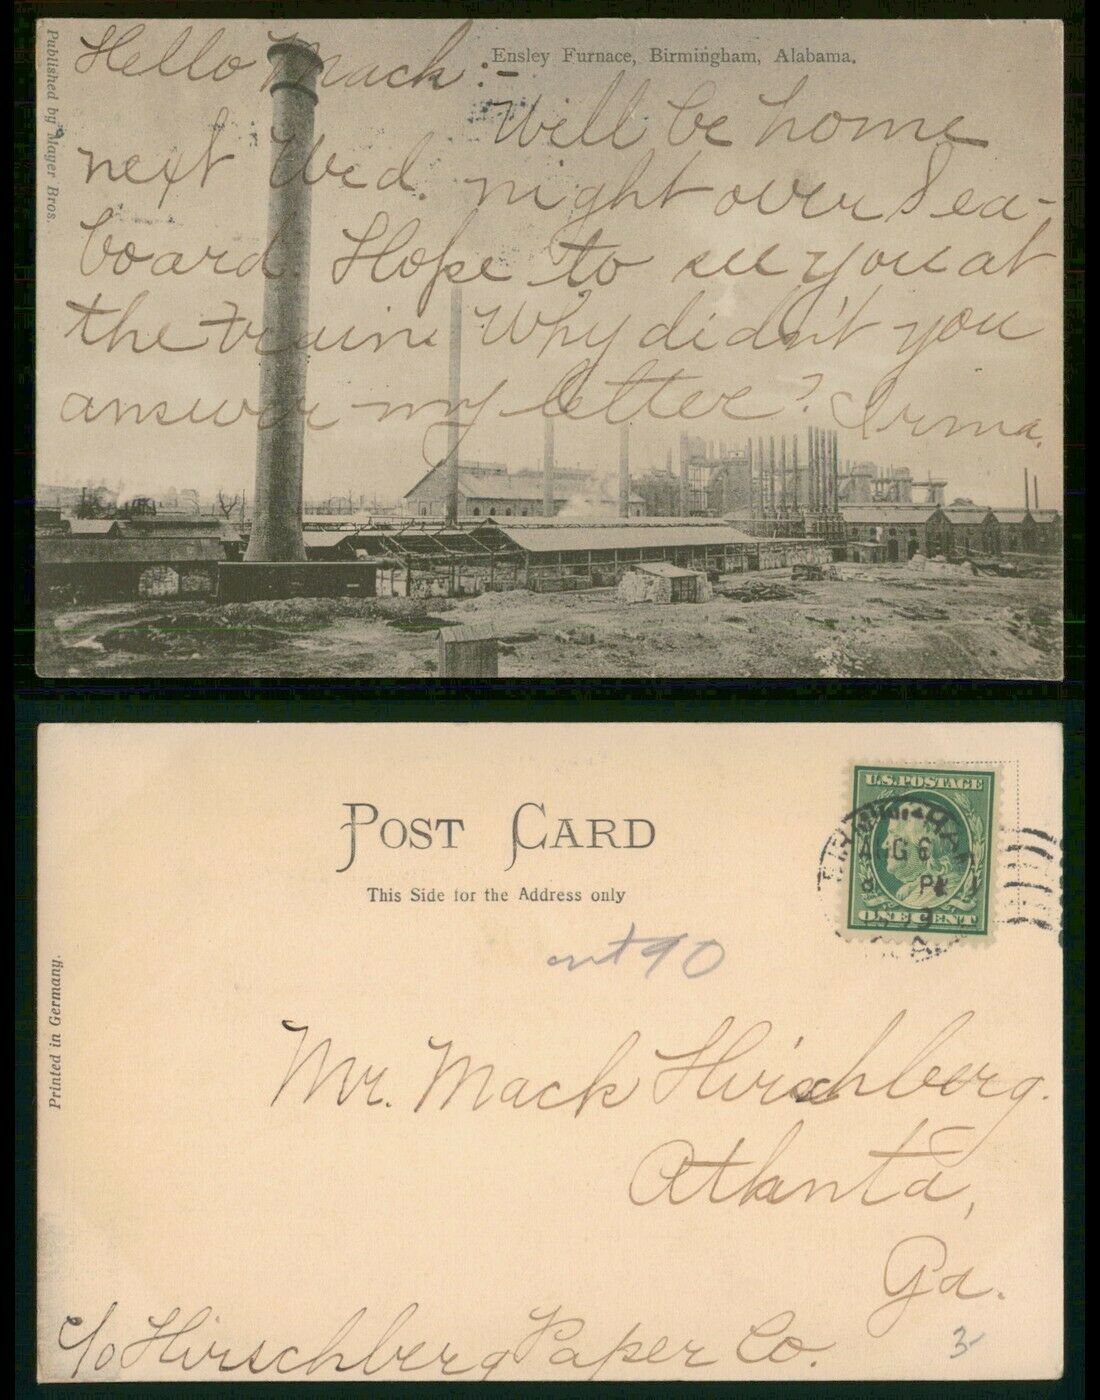 Ensley Furnace, Birmingham, Alabama.
Published by Mayer Bros.
Hello Mack:-
Will be home
next Wed. night over Sea-
board. Hope to see you at
the train. Why didn't you
answer my letter? Irma.
POST CARD
This Side for the Address only
Printed in Germany.
U.S. POSTAGE
ONE CENT
AUG 6
8 PM
90
Mr. Mack Hirschberg.
Atlanta,
Ga.
c/o Hirschberg Paper Co.
3